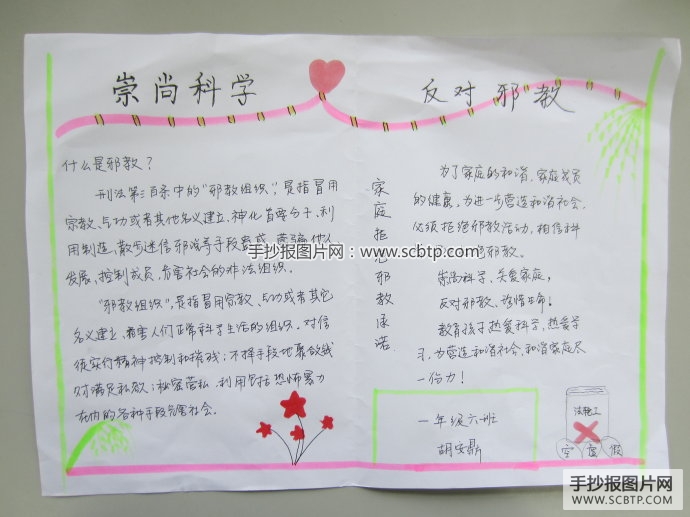 崇尚科学
反对邪教
什么是邪教？
刑法第三百条中的"邪教组织",是指冒用
宗教、气功或者其他名义建立、神化首要分子,利
用制造、散步迷信邪说等手段蛊惑、蒙骗他人
发展、控制成员,危害社会的非法组织。
"邪教组织",是指冒用宗教、气功或者其它
名义建立,危害人们正常科学生活的组织。对信
徒实行精神控制和摧残;不择手段地聚敛钱
财满足私欲;秘密营私,利用包括恐怖暴力
在内的各种手段危害社会。
家庭拒绝邪教承诺
为了家庭的和谐、家庭成员
的健康,为进一步营造和谐社会,
必须拒绝邪教活动,相信科
邪教。
崇尚科学、关爱家庭,
反对邪教、珍惜生命。
教育孩子热爱科学,热爱学
习,为营造和谐社会、和谐家庭尽
一份力!
一年级六班
胡安鼎
法轮工
空 虚 假
手抄报图片网:www.scbtp.com
手抄报图片网
WWW.SCBTP.COM